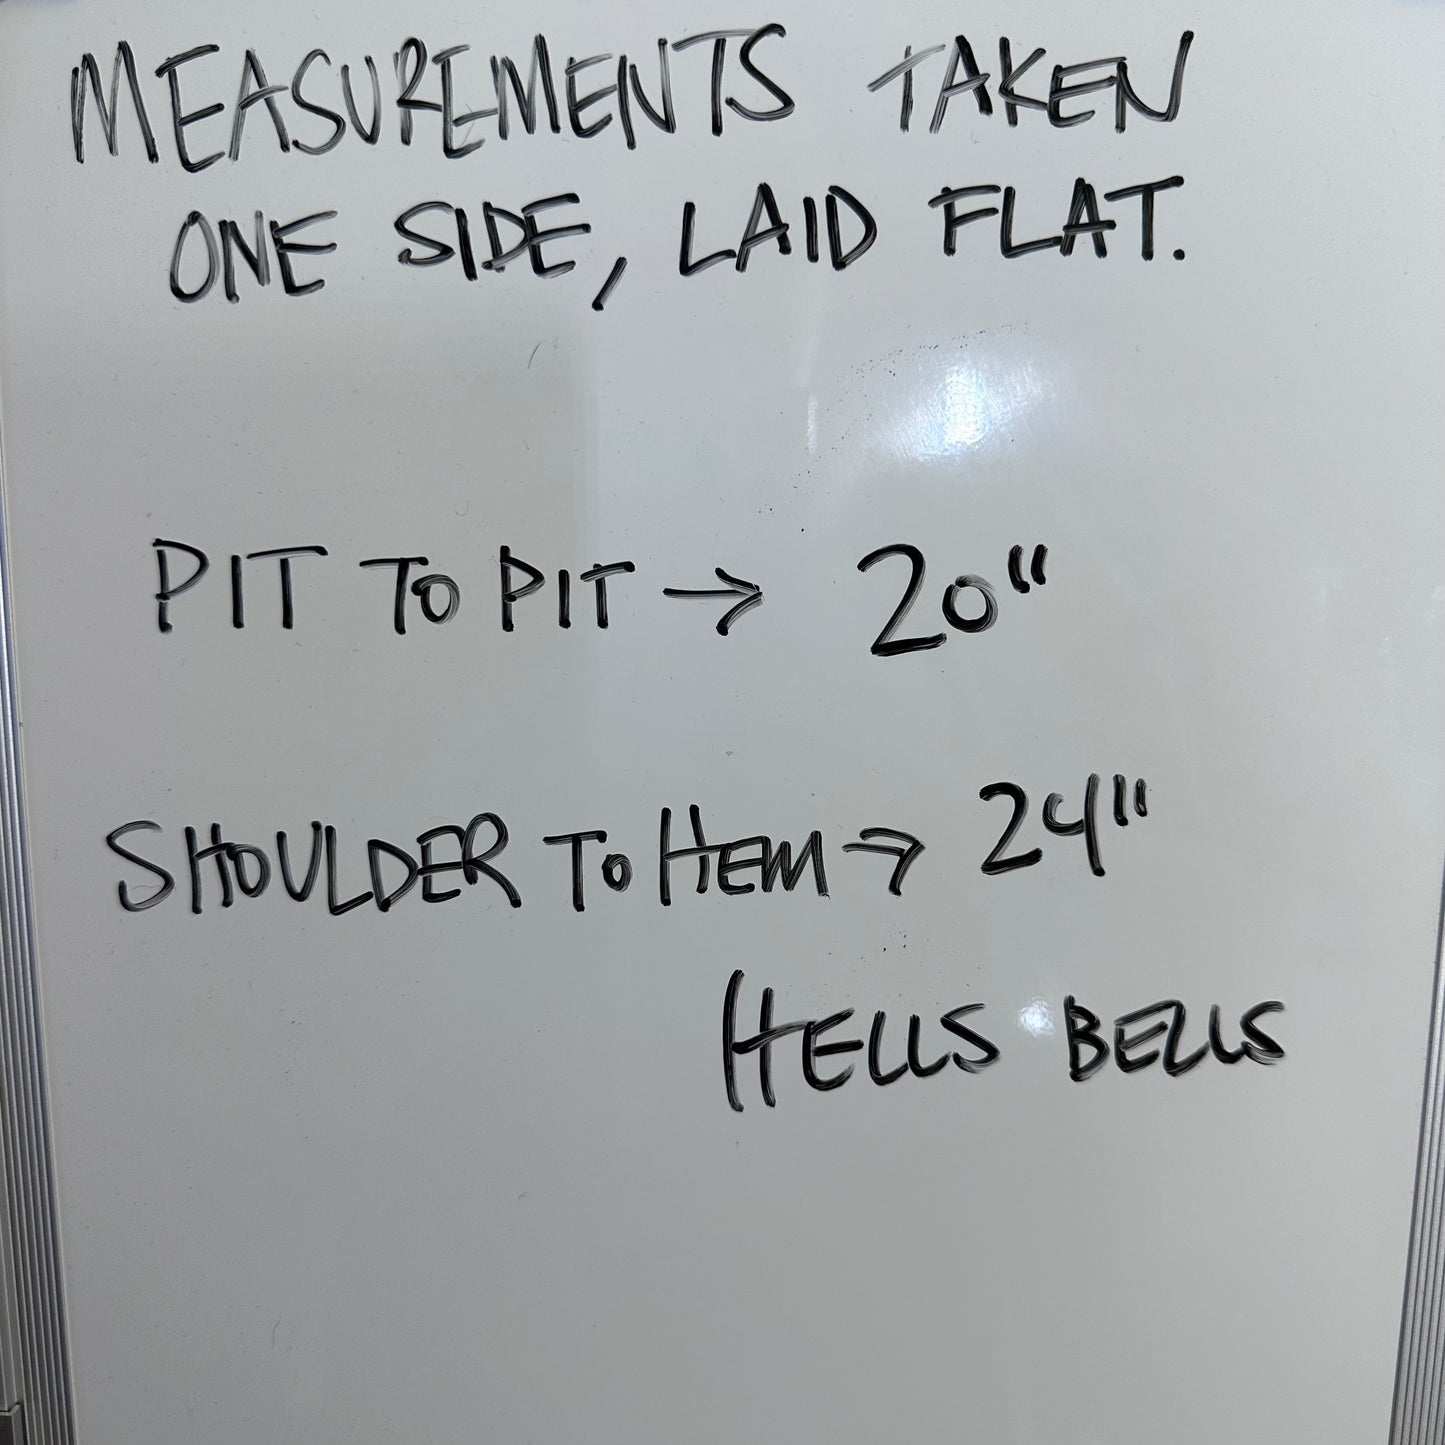 MEASUREMENTS TAKEN
ONE SIDE, LAID FLAT.
PIT TO PIT → 20"
SHOULDER TO HEM → 24"
HELLS BELLS